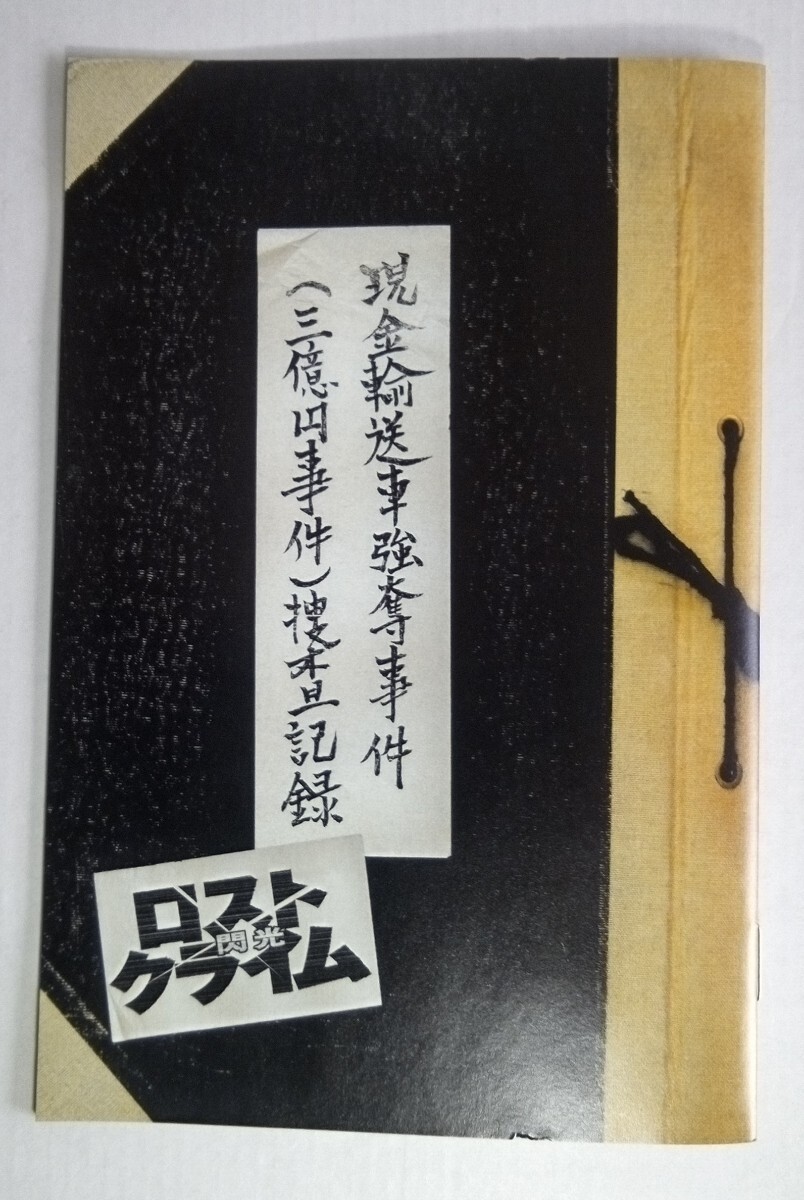 現金輸送車強奪事件
(三億円事件)捜査記録
ロスト
閃光
クライム